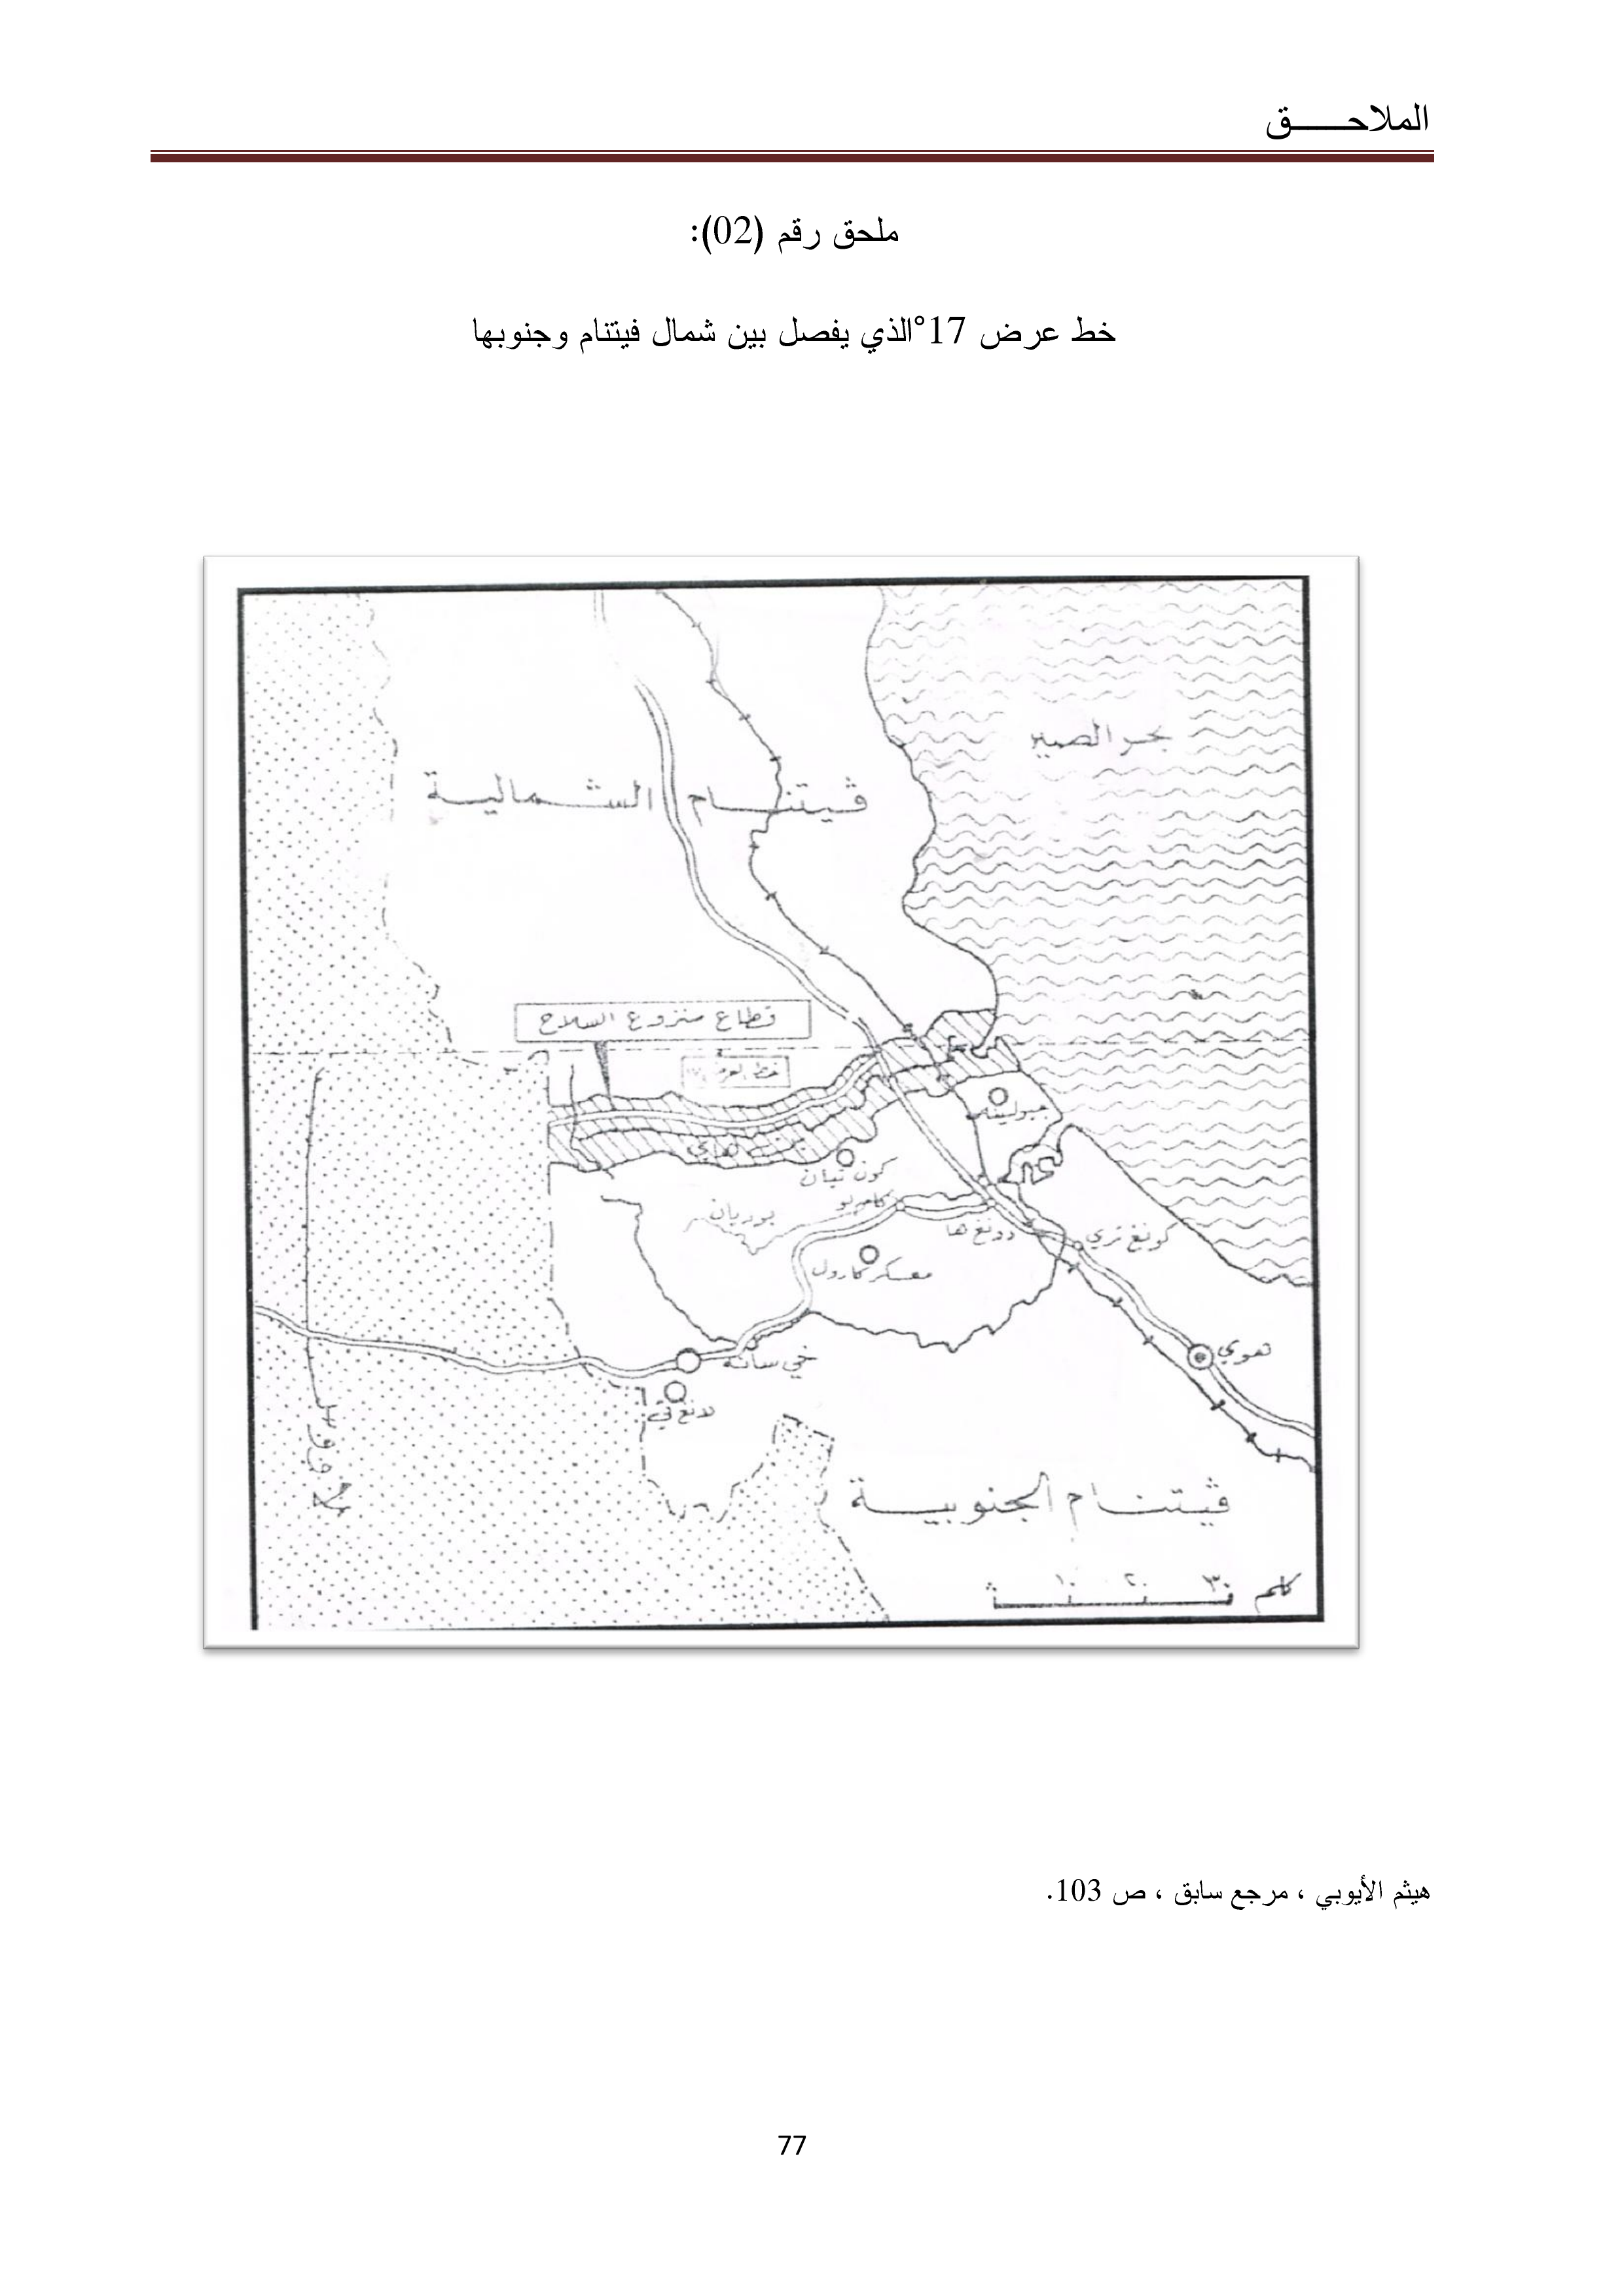 الملاحـــــق
ملحق رقم (02):
خط عرض 17°الذي يفصل بين شمال فيتنام وجنوبها
بحر الصين
ڤيتنام الشمالية
قطاع منزوع السلاح
خط العرض
كون تيان
كامرلو
دونغ ها
كونغ تري
معسكر كارول
خي سانه
هوي
لانغ في
ڤيتنام الجنوبية
١٠ ٢٠ ٣٠ كلم
هيثم الأيوبي ، مرجع سابق ، ص 103.
77